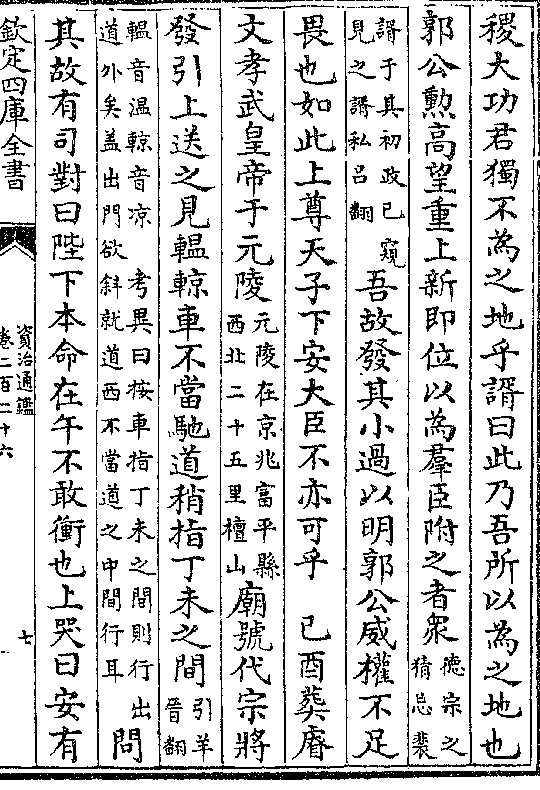 稷大功君獨不為之地乎諝曰此乃吾所以為之地也
郭公勲高望重上新即位以為羣臣附之者衆德宗之猜忌裴
諝于其初政已窺見之諝私吕翻吾故發其小過以明郭公威權不足
畏也如此上尊天子下安大臣不亦可乎　己酉葬睿
文孝武皇帝于元陵元陵在京兆富平縣西北二十五里檀山廟號代宗將
發引上送之見轀輬車不當馳道稍指丁未之間引羊晉翻
轀音温輬音凉　考異曰按車指丁未之間則行出道外矣盖出門欲斜就道西不當道之中間行耳問
其故有司對曰陛下本命在午不敢衝也上哭曰安有
欽定四庫全書
資治通鑑
卷二百二十六
七